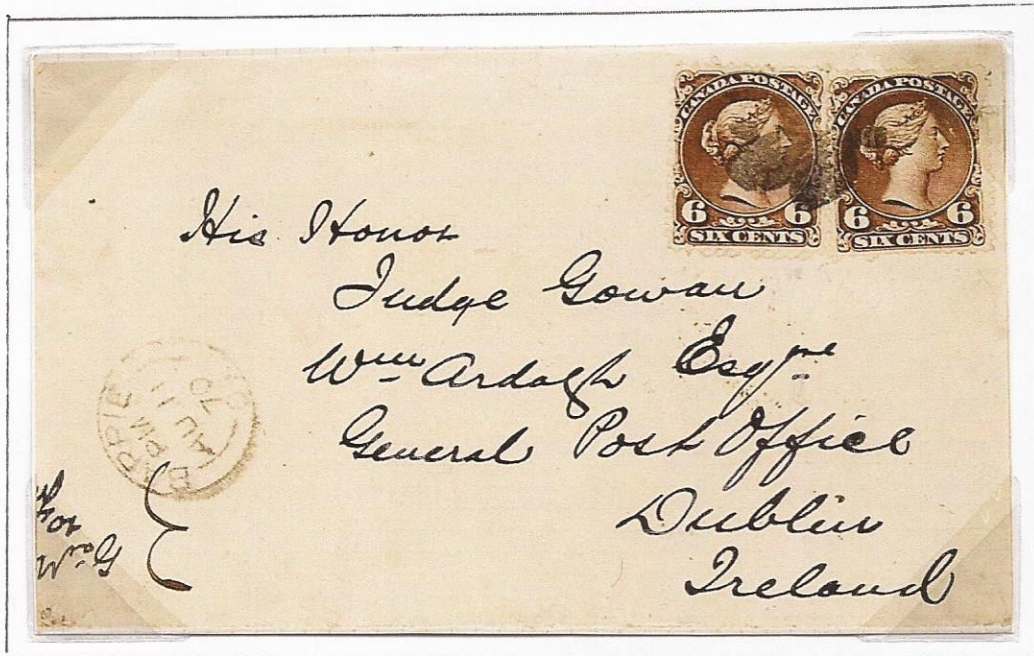 CANADA POSTAGE
6 6
SIX CENTS
CANADA POSTAGE
6 6
SIX CENTS
His Honor
Judge Gowan
Wm Ardagh Esqre
General Post Office
Dublin
Ireland
BARRIE
PM
AU 11
70